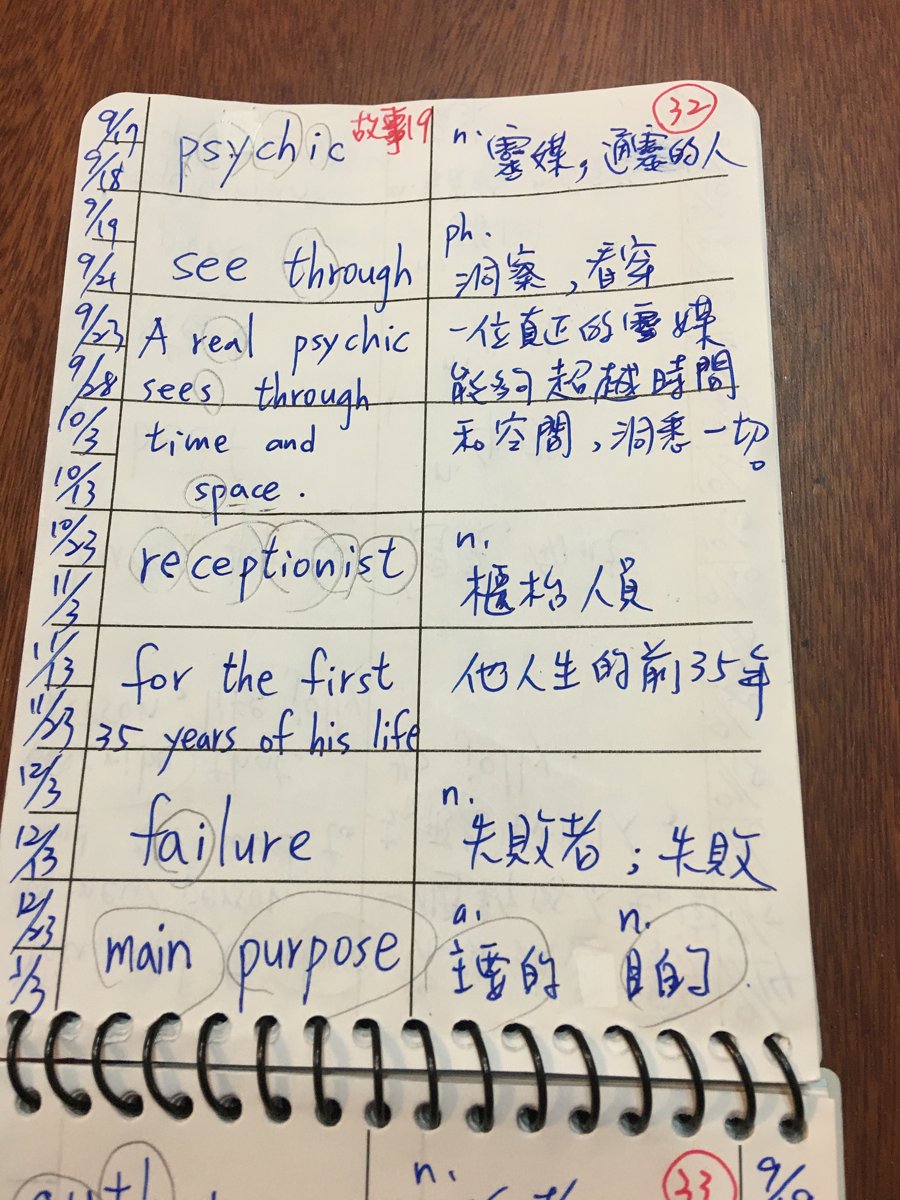 9/17
9/18
9/19
9/21
9/23
9/28
10/3
10/13
10/23
11/3
11/13
11/23
12/3
12/13
12/23
1/3
故事19
32
psychic
n.
靈媒，通靈的人
see through
ph.
洞察，看穿
A real psychic
sees through
time and
space.
一位真正的靈媒
能夠超越時間
和空間，洞悉一切。
receptionist
n.
櫃枱人員
for the first
35 years of his life
他人生的前35年
failure
n.
失敗者；失敗
main purpose
a. n.
主要的 目的
n.
33